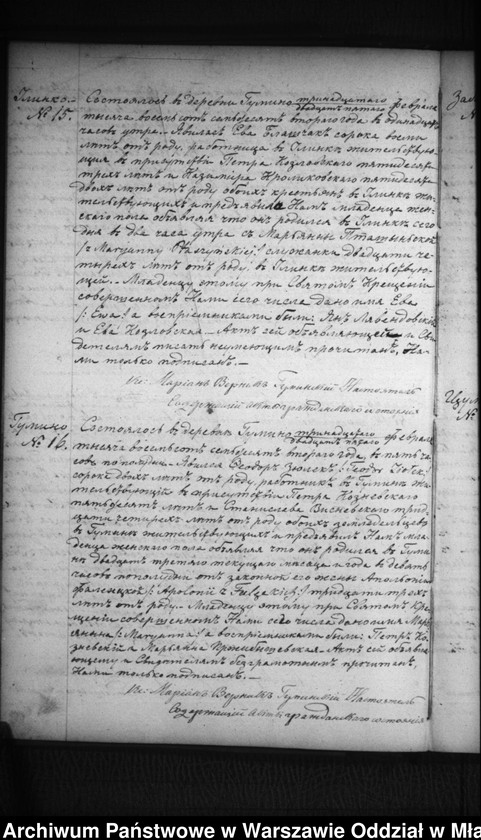 Глинко.
№ 15.
Состоялось въ деревни Гумино тринадцатаго Февраля
двадцать пятаго
тысяча восемьсотъ семьдесятъ втораго года въ одинадцать
часовъ утра. Явилась Ева Блащчакъ сорока восьми
лѣтъ отъ роду, работница въ Глинкѣ жительствую-
щая въ присутствіи Петра Козловскаго пятидесяти
трехъ лѣтъ и Казиміра Кроликовскаго пятидесяти
двохъ лѣтъ отъ роду обоихъ крестьянъ въ Глинкѣ жи-
тельствующихъ и предъявила Намъ младенца жен-
скаго пола объявляя что онъ родился въ Глинкѣ сего
дня въ два часа утра съ Марьянны
служанки двадцати че-
тырехъ лѣтъ отъ роду въ Глинкѣ жительствую-
щей. Младенцу этому при Святомъ Крещеніи
совершенномъ Нами сего числа дано имя Ева
/: Ewa:/ а воспріемниками были: Янъ
и Ева Козловская. Актъ сей объявляющей и Сви-
детелямъ писать неумеющимъ прочитанъ, На-
ми только подписанъ.
Кс: Маріанъ Гуминскій Настоятель
Содержащій акты гражданскаго состоянія
Гумино
№ 16.
Состоялось въ деревни Гумино тринадцатаго Февраля
двадцать пятаго
тысяча восемьсотъ семьдесятъ втораго года, въ пять ча-
совъ пополудни. Явился Ѳеодоръ /: Teodor
сорока двохъ лѣтъ отъ роду, работникъ въ Гуминѣ жи-
тельствующій въ присутствіи Петра
пятьдесятъ лѣтъ и Станислава Висневскаго трид-
цати четирехъ лѣтъ отъ роду обоихъ земледѣльцевъ
въ Гуминѣ жительствующихъ и предъявилъ Намъ мла-
денца женскаго пола объявляя что онъ родился въ Гуми-
нѣ двадцать третяго текущаго мѣсяца и года въ девять
часовъ пополудни отъ законной его жены Аполоніи
/: Apolonii z тридцати трехъ
лѣтъ отъ роду. Младенцу этому при Святомъ Кре-
щеніи совершенномъ Нами сего числа дано имя Марь-
янна /: Maryanna:/ а воспріемниками были: Петръ
и Марьянна Актъ сей объявля-
ющему и Свидѣтелямъ безграмотнымъ прочитанъ,
Нами только подписанъ.
Кс: Маріанъ Гуминскій Настоятель
Содержащій акты гражданскаго состоянія
Archiwum Państwowe w Warszawie Oddział w Mła